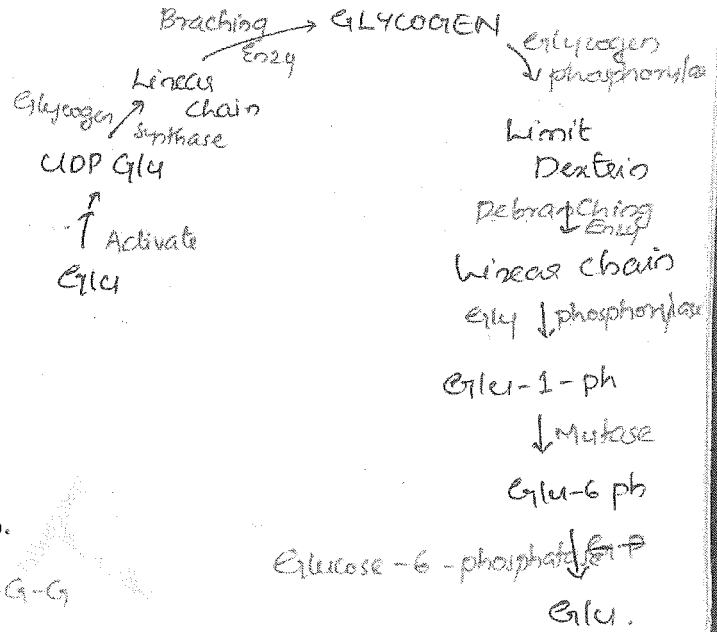 Braching → GLYCOGEN
Enzy
Glycogen
phosphorylase
Linear
Chain
Glycogen
synthase
UDP Glu
Activate
Glu
Limit
Dextrin
Debranching
Enzy
Linear chain
Gly ↓ phosphorylase
Glu-1-ph
↓ Mutase
Glu-6 ph
Glucose-6-phosphatase
Glu.
-G-G